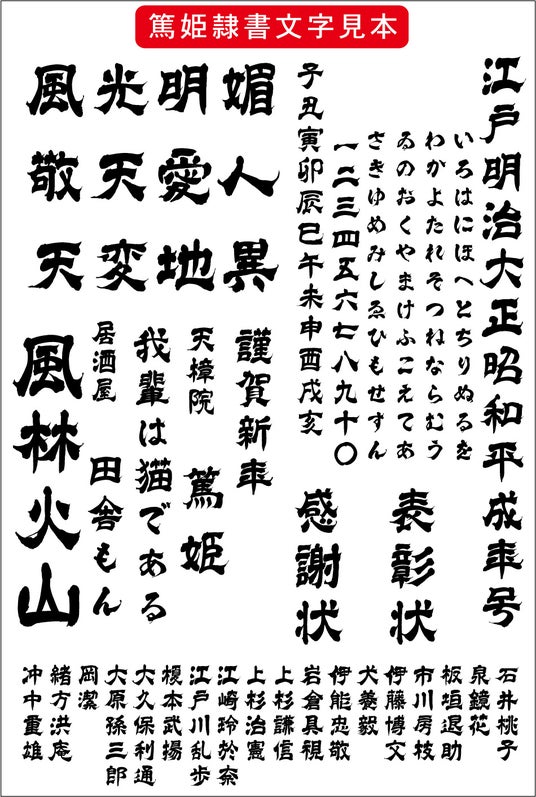 篤姫隷書文字見本
江戸明治大正昭和平成年号
いろはにほへとちりぬるを
わかよたれそつねならむう
ゐのおくやまけふこえてあ
さきゆめみしゑひもせすん
一二三四五六七八九十〇
子丑寅卯辰巳午未申酉戌亥
表彰状
感謝状
媚人異
明愛地
光天変
風敬天
謹賀新年
天樟院 篤姫
我輩は猫である
居酒屋 田舎もん
風林火山
石井桃子
泉鏡花
板垣退助
市川房枝
伊藤博文
犬養毅
伊能忠敬
岩倉具視
上杉謙信
上杉治憲
江崎玲於奈
江戸川乱歩
榎本武揚
大久保利通
大原孫三郎
岡潔
緒方洪庵
冲中重雄